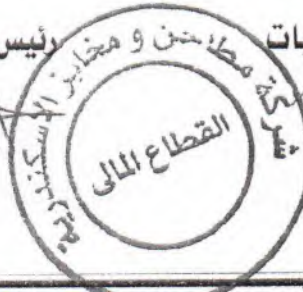 ات رئيس
شركة مطاحن و مخابز الإسكندرية
القطاع المالى